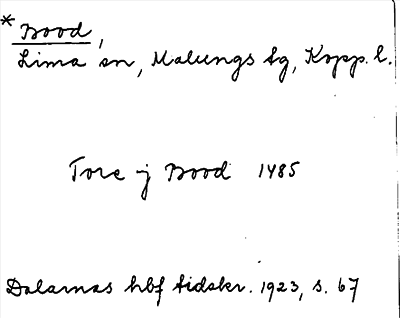 *Bood,
Lima sn, Malungs tg, Kopp. l.
Tore j Bood 1485
Dalarnas hbf tidskr. 1923, s. 67